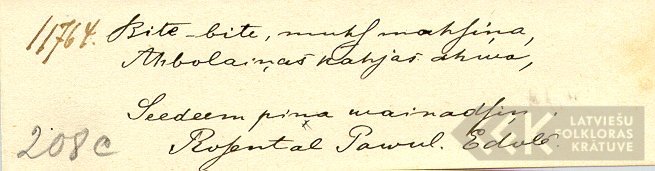 11764. Bite-bite, muhſ mahſiņa,
Ahbolaiņas kahjas ahwa,
Seedeem pina wainadſiņ.
208c
Rosental Pawul. Edolē.
LATVIEŠU
FOLKLORAS
KRĀTUVE